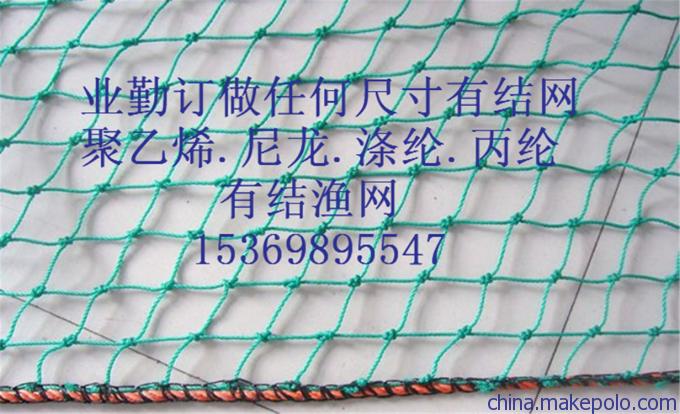 业勤订做任何尺寸有结网
聚乙烯.尼龙.涤纶.丙纶
有结渔网
15369895547
china.makepolo.com